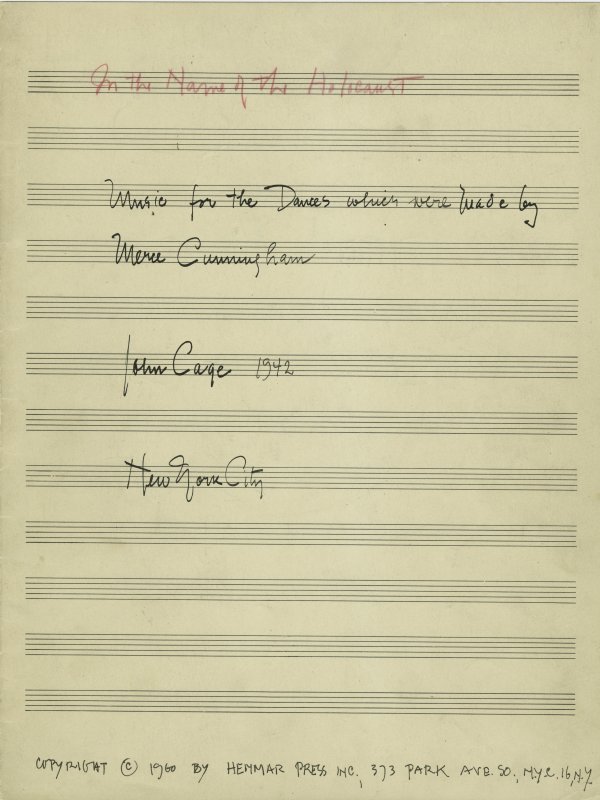 In the Name of the Holocaust
Music for the Dances which were made by
Merce Cunningham
John Cage 1942
New York City
COPYRIGHT © 1960 BY HENMAR PRESS INC., 373 PARK AVE. SO., N.Y.C. 16, N.Y.